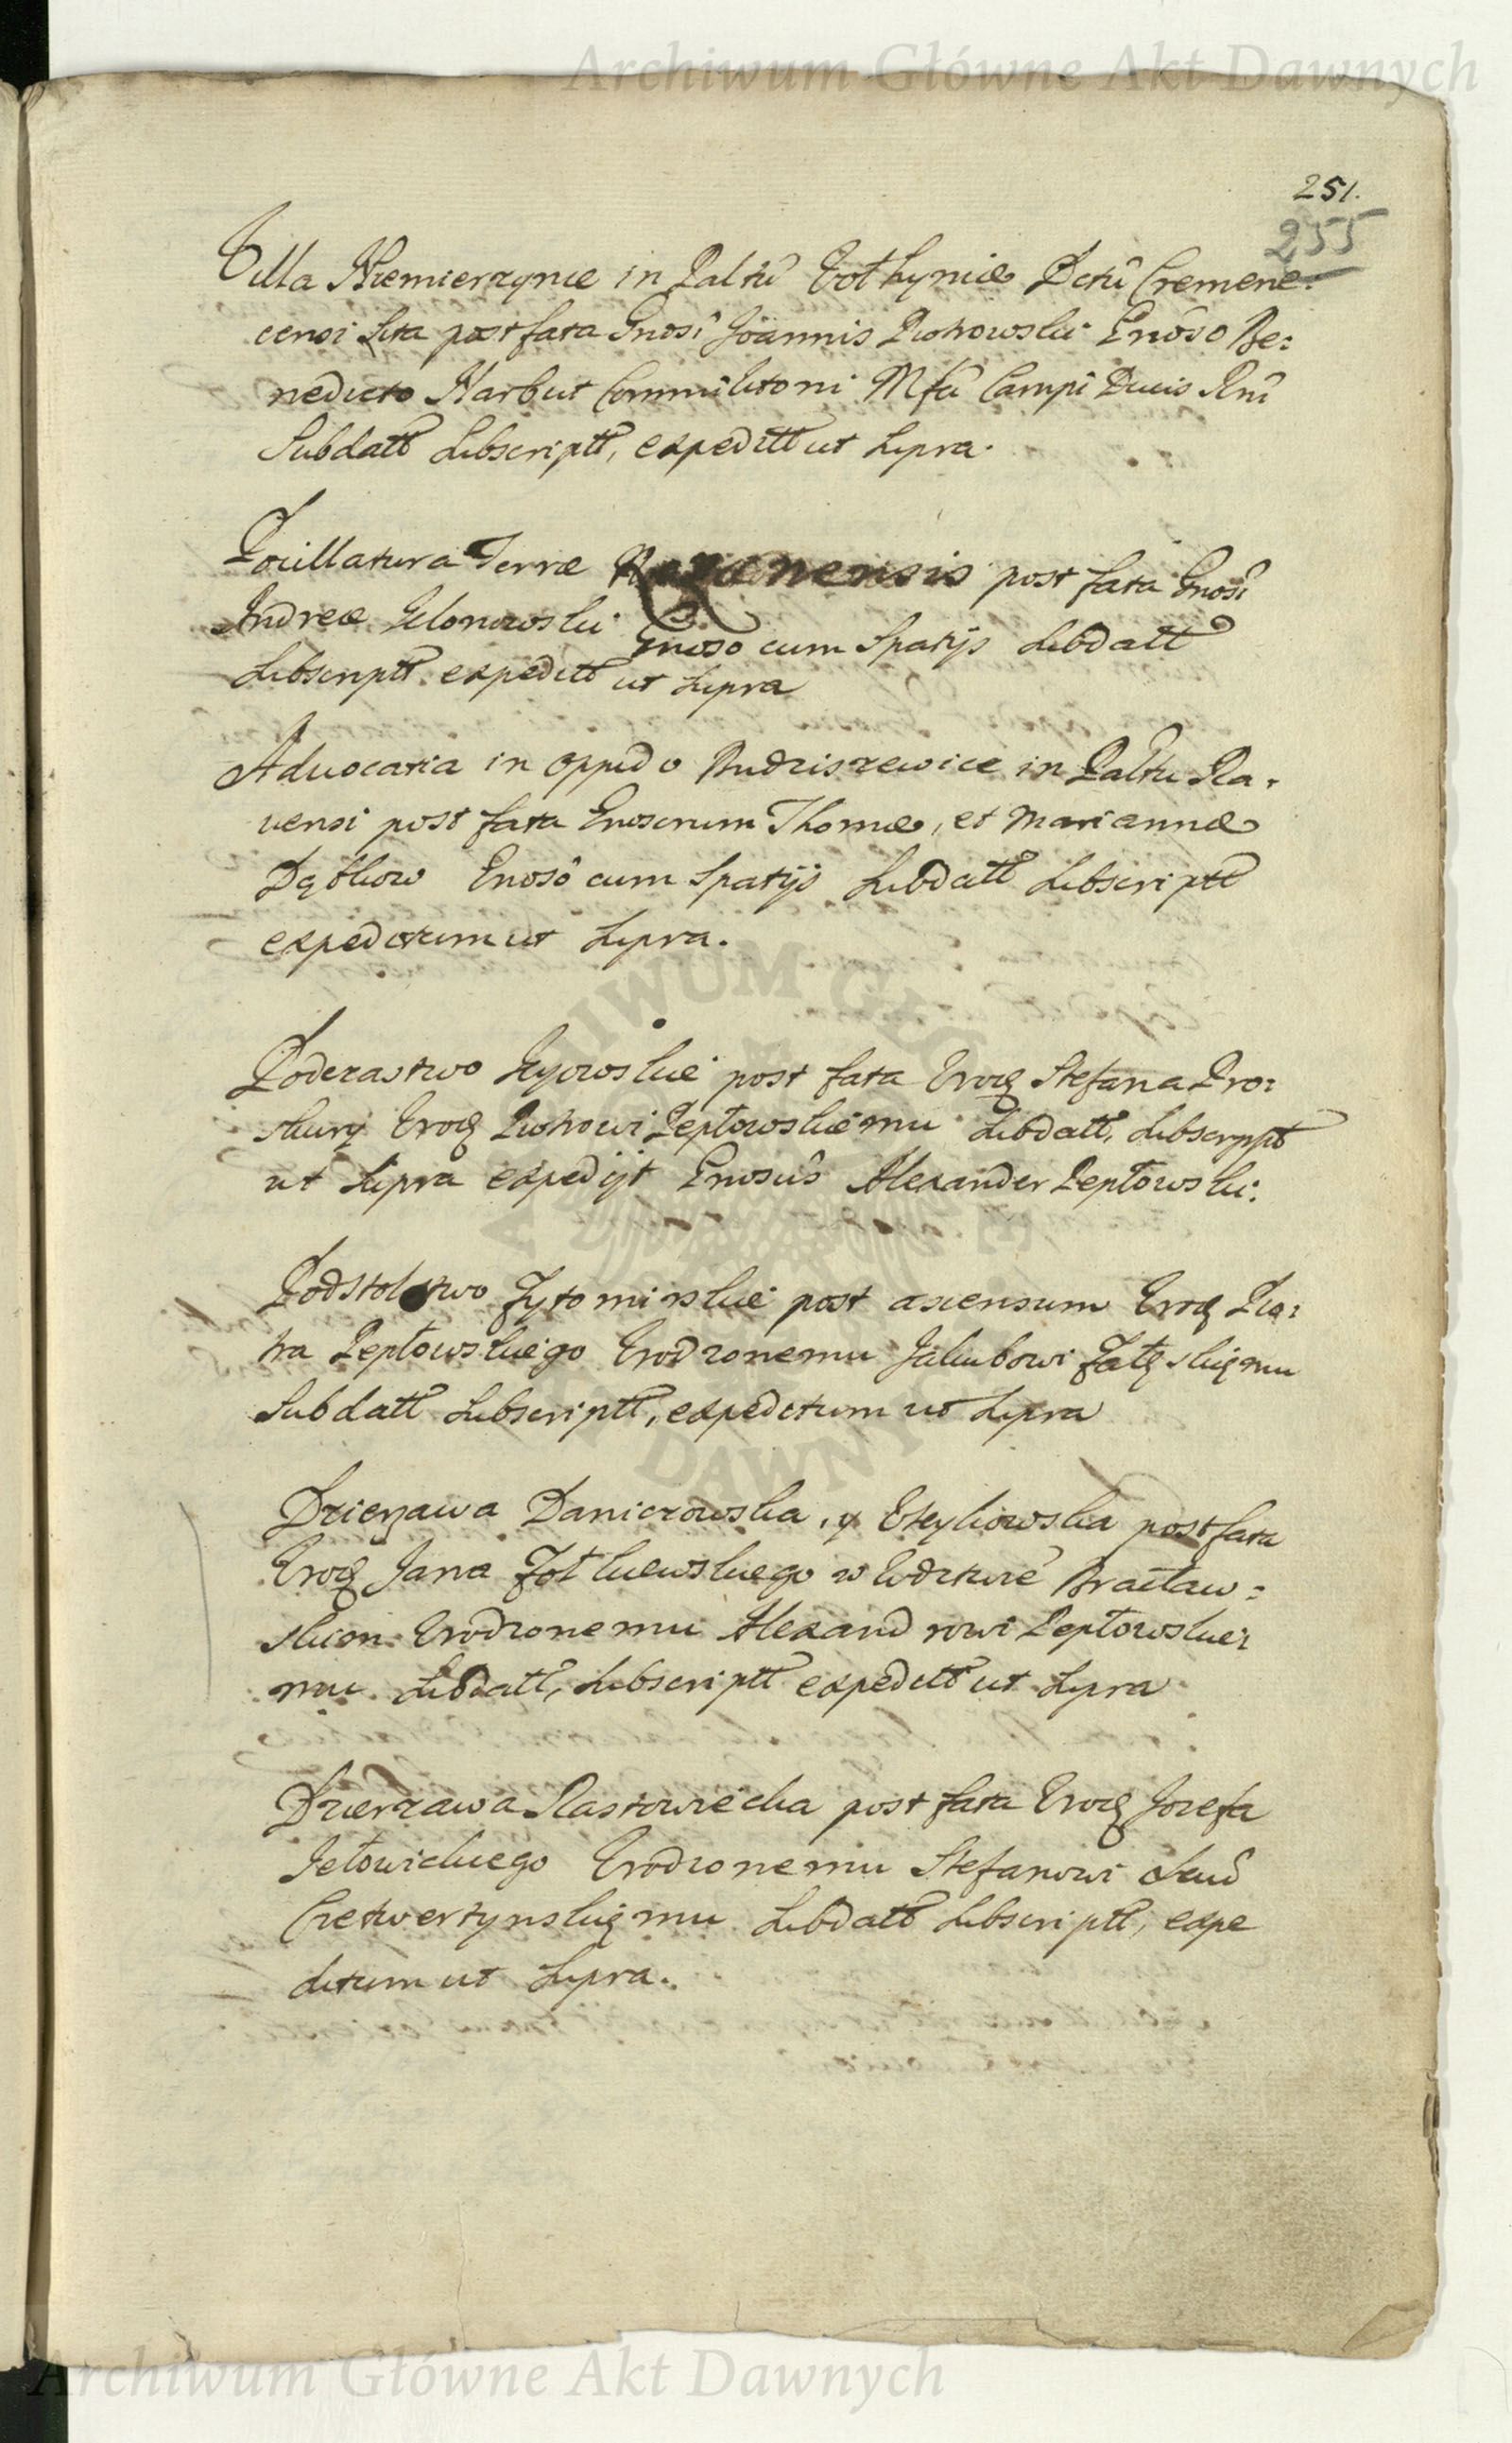 Archiwum Główne Akt Dawnych
251.
255
Villa Niemierzynce in Paltu Volhyniæ Dctu Cremene:
censi sita post fata Gnosi Joannis Piotrowski Gnoso Be:
nedicto Narbut Commilitoni Mfci Campi Ducis Rni
Subdatt Subscriptt, expeditt ut supra.
Pocillatura Terræ Rozanensis post fata Gnosi
Andreæ Glonowski Gnoso cum Spatijs Subdatt
Subscriptt expeditt ut supra
Advocatia in oppido Budziszewice in Paltu Ra:
vensi post fata Gnosorum Thomæ, et Mariannæ
Dąbkow Gnoso cum Spatijs Subdatt Subscriptt
expeditum ut supra.
Podczastwo Kyowskie post fata Urogo Stefana Pro:
skury Urogo Piotrowi Peptowskiemu Subdatt, Subscrypt
ut supra expedijt Gnosus Alexander Peptowski.
Podstolstwo Zytomirskie post ascensum Urogo Pio:
tra Peptowskiego Urodzonemu Jakubowi Załęskięmu
Subdatt Subscriptt, expeditum ut supra
Dzierzawa Daniczowska, y post fata
Urogo Jana Zołkiewskiego w Wdztwie Bracław:
skim Urodzonemu Alexandrowi Peptowskie:
mu Subdatt, Subscriptt expeditt ut supra
Dzierzawa Rastowiecka post fata Urogo Jozefa
Jełowickiego Urodzonemu Stefanowi
Czetwertynskięmu Subdatt Subscriptt, expe
ditum ut supra.
ARCHIWUM GŁÓWNE AKT DAWNYCH
Archiwum Główne Akt Dawnych